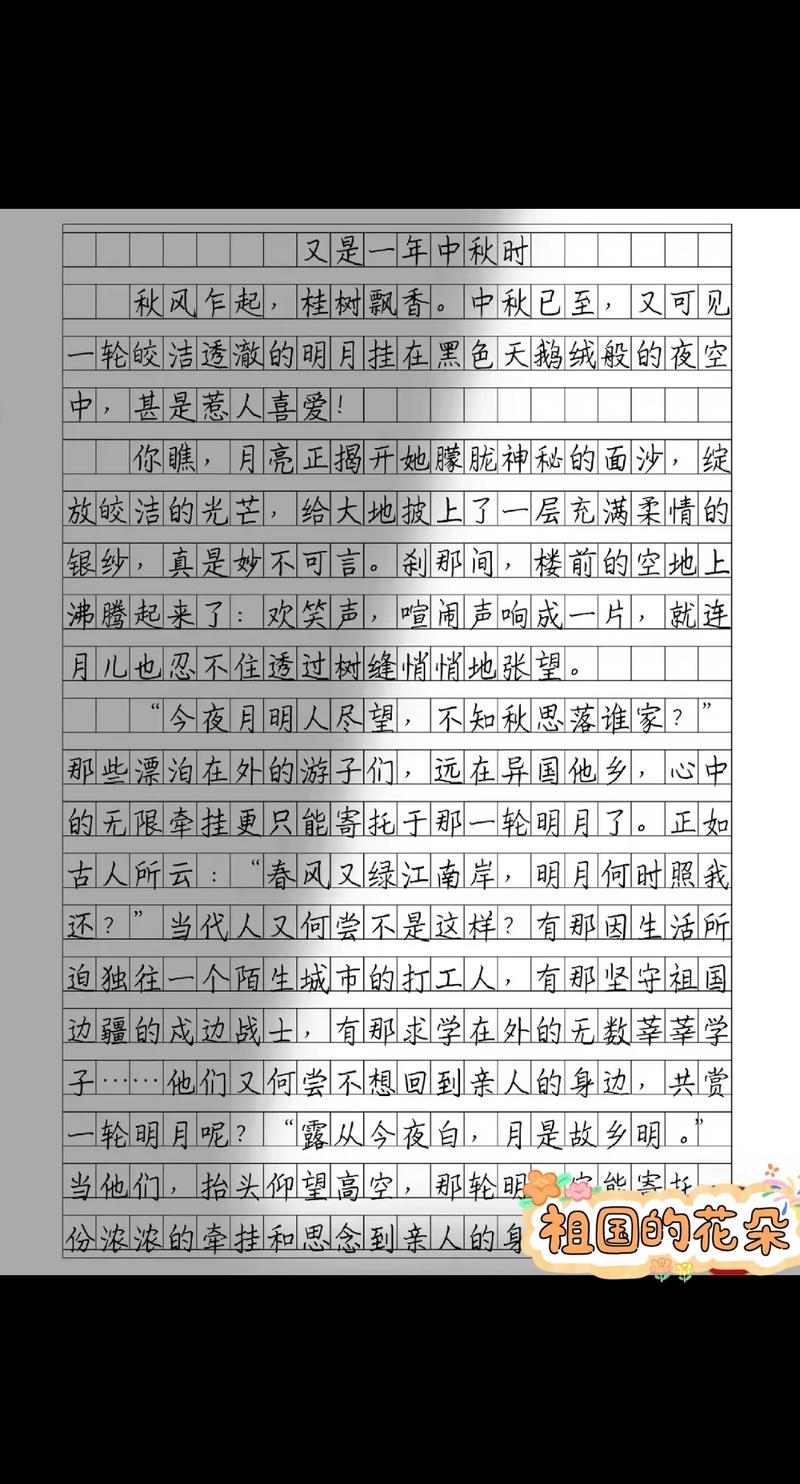 又是一年中秋时
秋风乍起，桂树飘香。中秋已至，又可见
一轮皎洁透澈的明月挂在黑色天鹅绒般的夜空
中，甚是惹人喜爱！
你瞧，月亮正揭开她朦胧神秘的面沙，绽
放皎洁的光芒，给大地披上了一层充满柔情的
银纱，真是妙不可言。刹那间，楼前的空地上
沸腾起来了：欢笑声，喧闹声响成一片，就连
月儿也忍不住透过树缝悄悄地张望。
“今夜月明人尽望，不知秋思落谁家？”
那些漂泊在外的游子们，远在异国他乡，心中
的无限牵挂更只能寄托于那一轮明月了。正如
古人所云：“春风又绿江南岸，明月何时照我
还？”当代人又何尝不是这样？有那因生活所
迫独往一个陌生城市的打工人，有那坚守祖国
边疆的戍边战士，有那求学在外的无数莘莘学
子……他们又何尝不想回到亲人的身边，共赏
一轮明月呢？“露从今夜白，月是故乡明。”
当他们，抬头仰望高空，那轮明能寄托
份浓浓的牵挂和思念到亲人的身
祖国的花朵